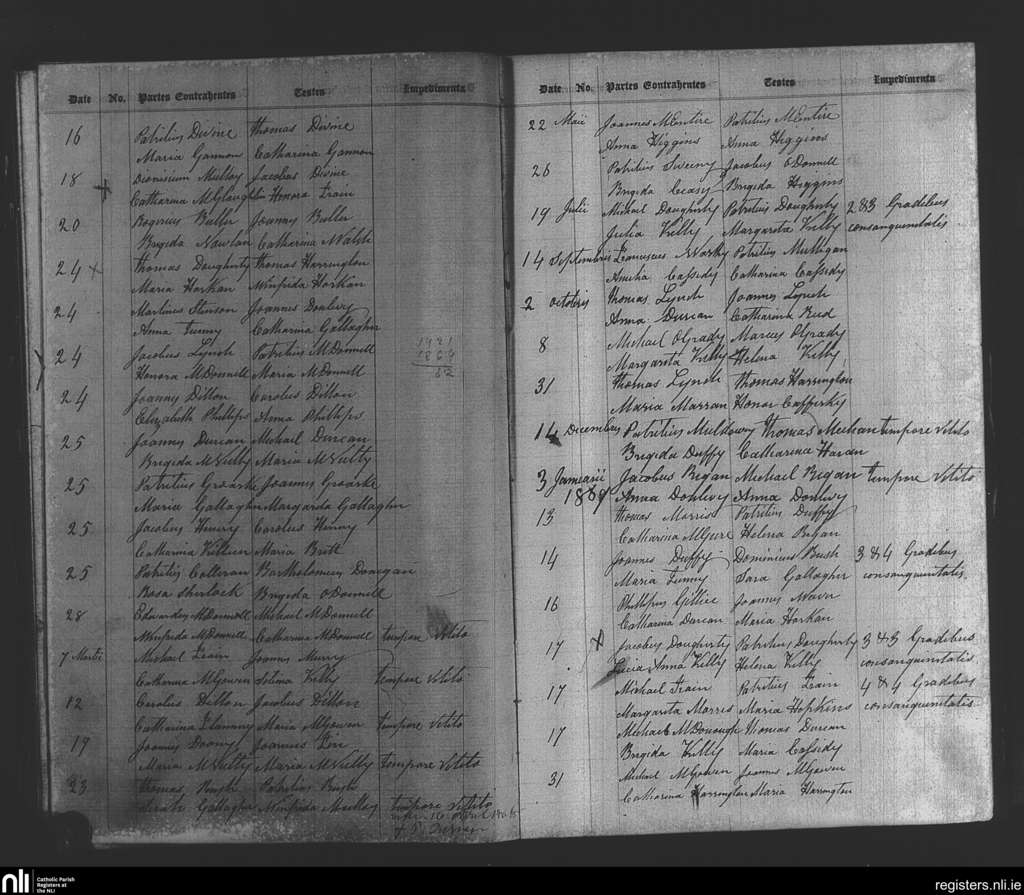 Date No. Partes Contrahentes Testes Impedimenta
16 Patritius Devine Thomas Devine
Maria Gannon Catharina Gannon
18 Dionisium Mulloy Jacobus Devine
Catharina Honora
20 Butler Joannes Butler
Brigida Nowlan Catharina Walsh
24 Thomas Dougherty Thomas Harrington
Maria Horkan Winifrida Horkan
24 Martinus Joannes Donlevy
Anna Catharina Gallagher
24 Jacobus Lynch Patritius McDonnell
Honora McDonnell Maria McDonnell
1921
1869
52
24 Joannes Dillon Carolus Dillon
Elizabeth Phillips Anna Phillips
25 Joannes Durcan Michael Durcan
Brigida McNulty Maria McNulty
25 Patritius Groarke Joannes Groarke
Maria Gallagher Margarita Gallagher
25 Jacobus Henry Carolus Henry
Catharina Maria Brett
25 Patritius Colleran Bartholomeus
Rosa Sherlock Brigida O'Donnell
28 Edwardus McDonnell Michael McDonnell
Winifrida McDonnell Catharina McDonnell tempore Vetito
7 Martii Michael Joannes
Catharina McGowen Kelly tempore Vetito
12 Carolus Dillon Jacobus Dillon
Catharina Maria McGowen tempore Vetito
19 Joannes Joannes
Maria McNulty Maria McNulty tempore Vetito
23 Thomas Patritius
Gallagher Winifrida tempore Vetito
Date No. Partes Contrahentes Testes Impedimenta
22 Maii Joannes McEntire Patritius McEntire
Anna Higgins Anna Higgins
26 Patritius Sweeny Jacobus O'Donnell
Brigida Casey Brigida Higgins
19 Julii Michael Dougherty Patritius Dougherty 2 & 3 Gradibus
Julia Kelly Margarita Kelly consanguinitatis
14 Septembris Patritius Mulligan
Cassedy Catharina Cassedy
2 Octobris Thomas Lynch Joannes Lynch
Anna Durcan Catharina
8 Michael O'Grady Marcus O'Grady
Margarita Kelly Helena Kelly
31 Thomas Lynch Thomas Harrington
Maria Marran Honor Cafferky
14 Decembris Patritius Muldowny Thomas Meehan tempore Vetito
Brigida Duffy Catharina Haran
3 Januarii Jacobus Regan Michael Regan tempore Vetito
1869 Anna Donlevy Anna Donlevy
13 Thomas Morris Patritius Duffy
Catharina Helena
14 Joannes Duffy Dominicus Rush 3 & 4 Gradibus
Maria Sara Gallagher consanguinitatis
16 Phillipus Joannes
Catharina Durcan Maria Horkan
17 Jacobus Dougherty Patritius Dougherty 3 & 3 Gradibus
Anna Kelly Helena Kelly consanguinitatis
17 Michael Patritius 4 & 4 Gradibus
Margarita Morris Maria Hopkins consanguinitatis
17 Michael McDonough Thomas Durcan
Brigida Kelly Maria Cassidy
31 Michael McGowen Joannes McGowen
Catharina Harrington Maria Harrington
nli Catholic Parish
Registers at
the NLI
registers.nli.ie